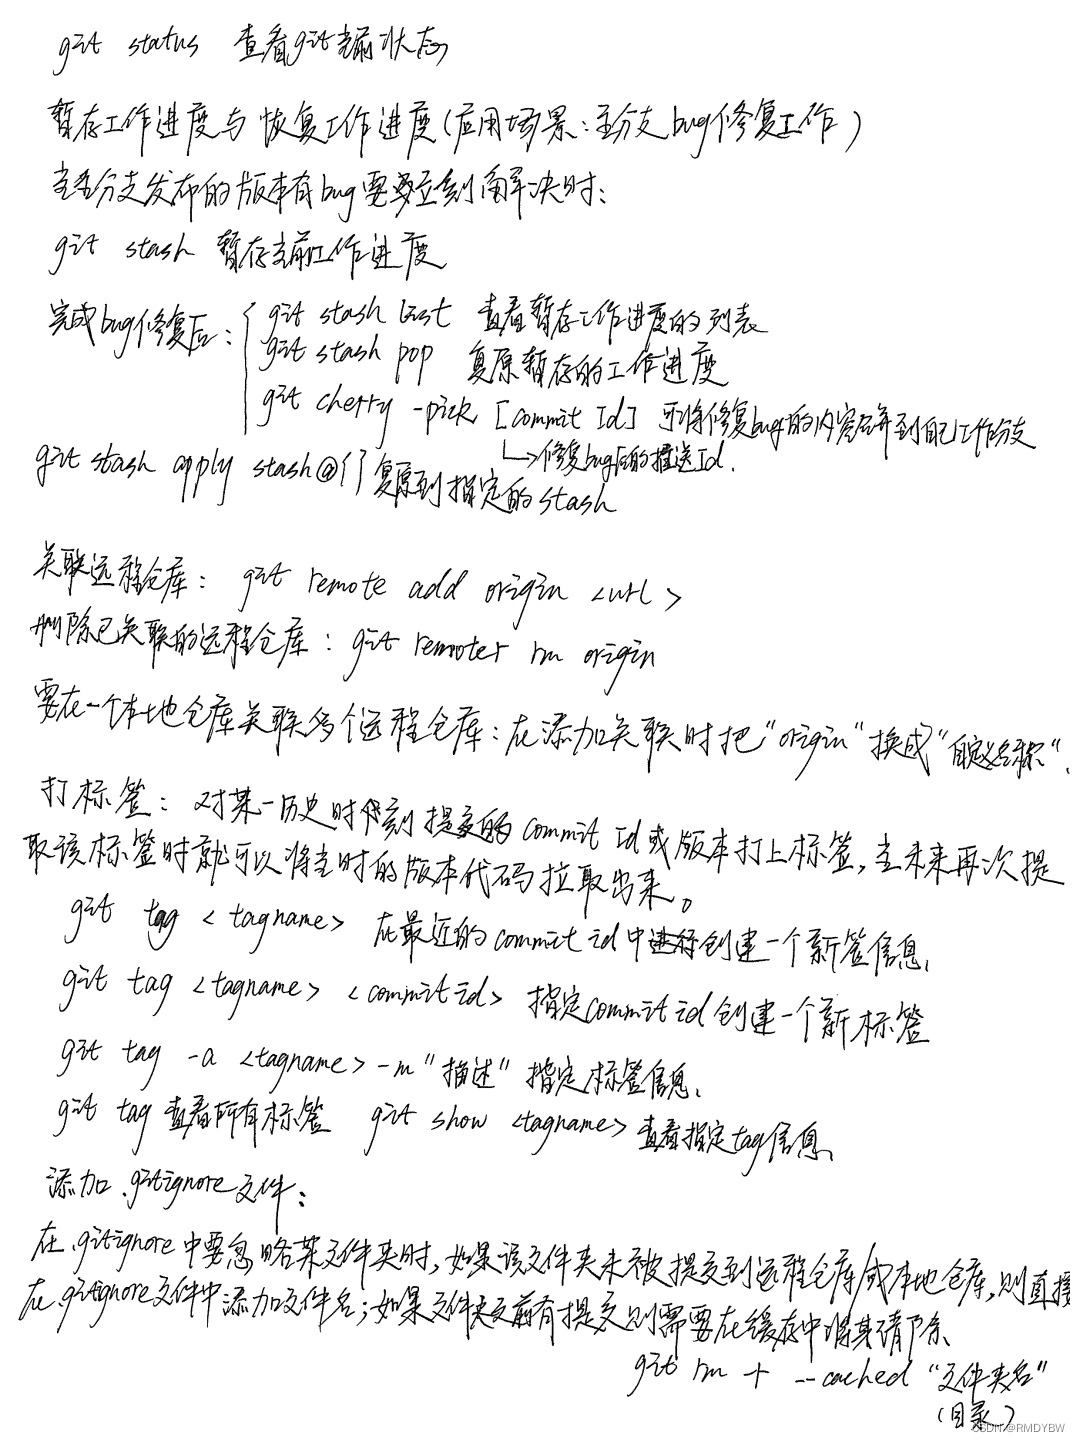 git status 查看git当前状态
暂存工作进度与恢复工作进度(应用场景:主分支bug修复工作)
当主分支发布的版本有bug需要立刻解决时:
git stash 暂存当前工作进度
完成bug修复后:
git stash list 查看暂存工作进度的列表
git stash pop 复原暂存的工作进度
git cherry -pick [commit Id] 可将修复bug的内容合并到自己工作分支
↳修复bug后的推送Id.
git stash apply stash@{} 复原到指定的stash
关联远程仓库: git remote add origin <url>
删除已关联的远程仓库: git remoter rm origin
要在一个本地仓库关联多个远程仓库:在添加关联时把"origin"换成"自定义名称".
打标签: 对某一历史时刻提交的commit Id或版本打上标签,当未来再次提
取该标签时就可以将当时的版本代码拉取出来。
git tag <tagname> 在最近的commit id中进行创建一个新签信息.
git tag <tagname> <commit id> 指定commit id创建一个新标签
git tag -a <tagname> -m "描述" 指定标签信息.
git tag 查看所有标签 git show <tagname> 查看指定tag信息.
添加 .gitignore文件:
在.gitignore中要忽略某文件夹时,如果该文件夹未被提交到远程仓库/或本地仓库,则直接
在.gitignore文件中添加文件名;如果文件夹之前有提交则需要在缓存中将其清除.
git rm + --cached "文件夹名"
(目录)
CSDN @RMDYBW